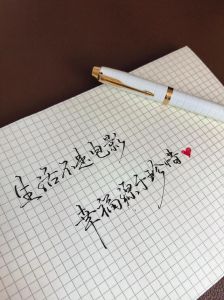 生活不是电影
幸福源于珍惜